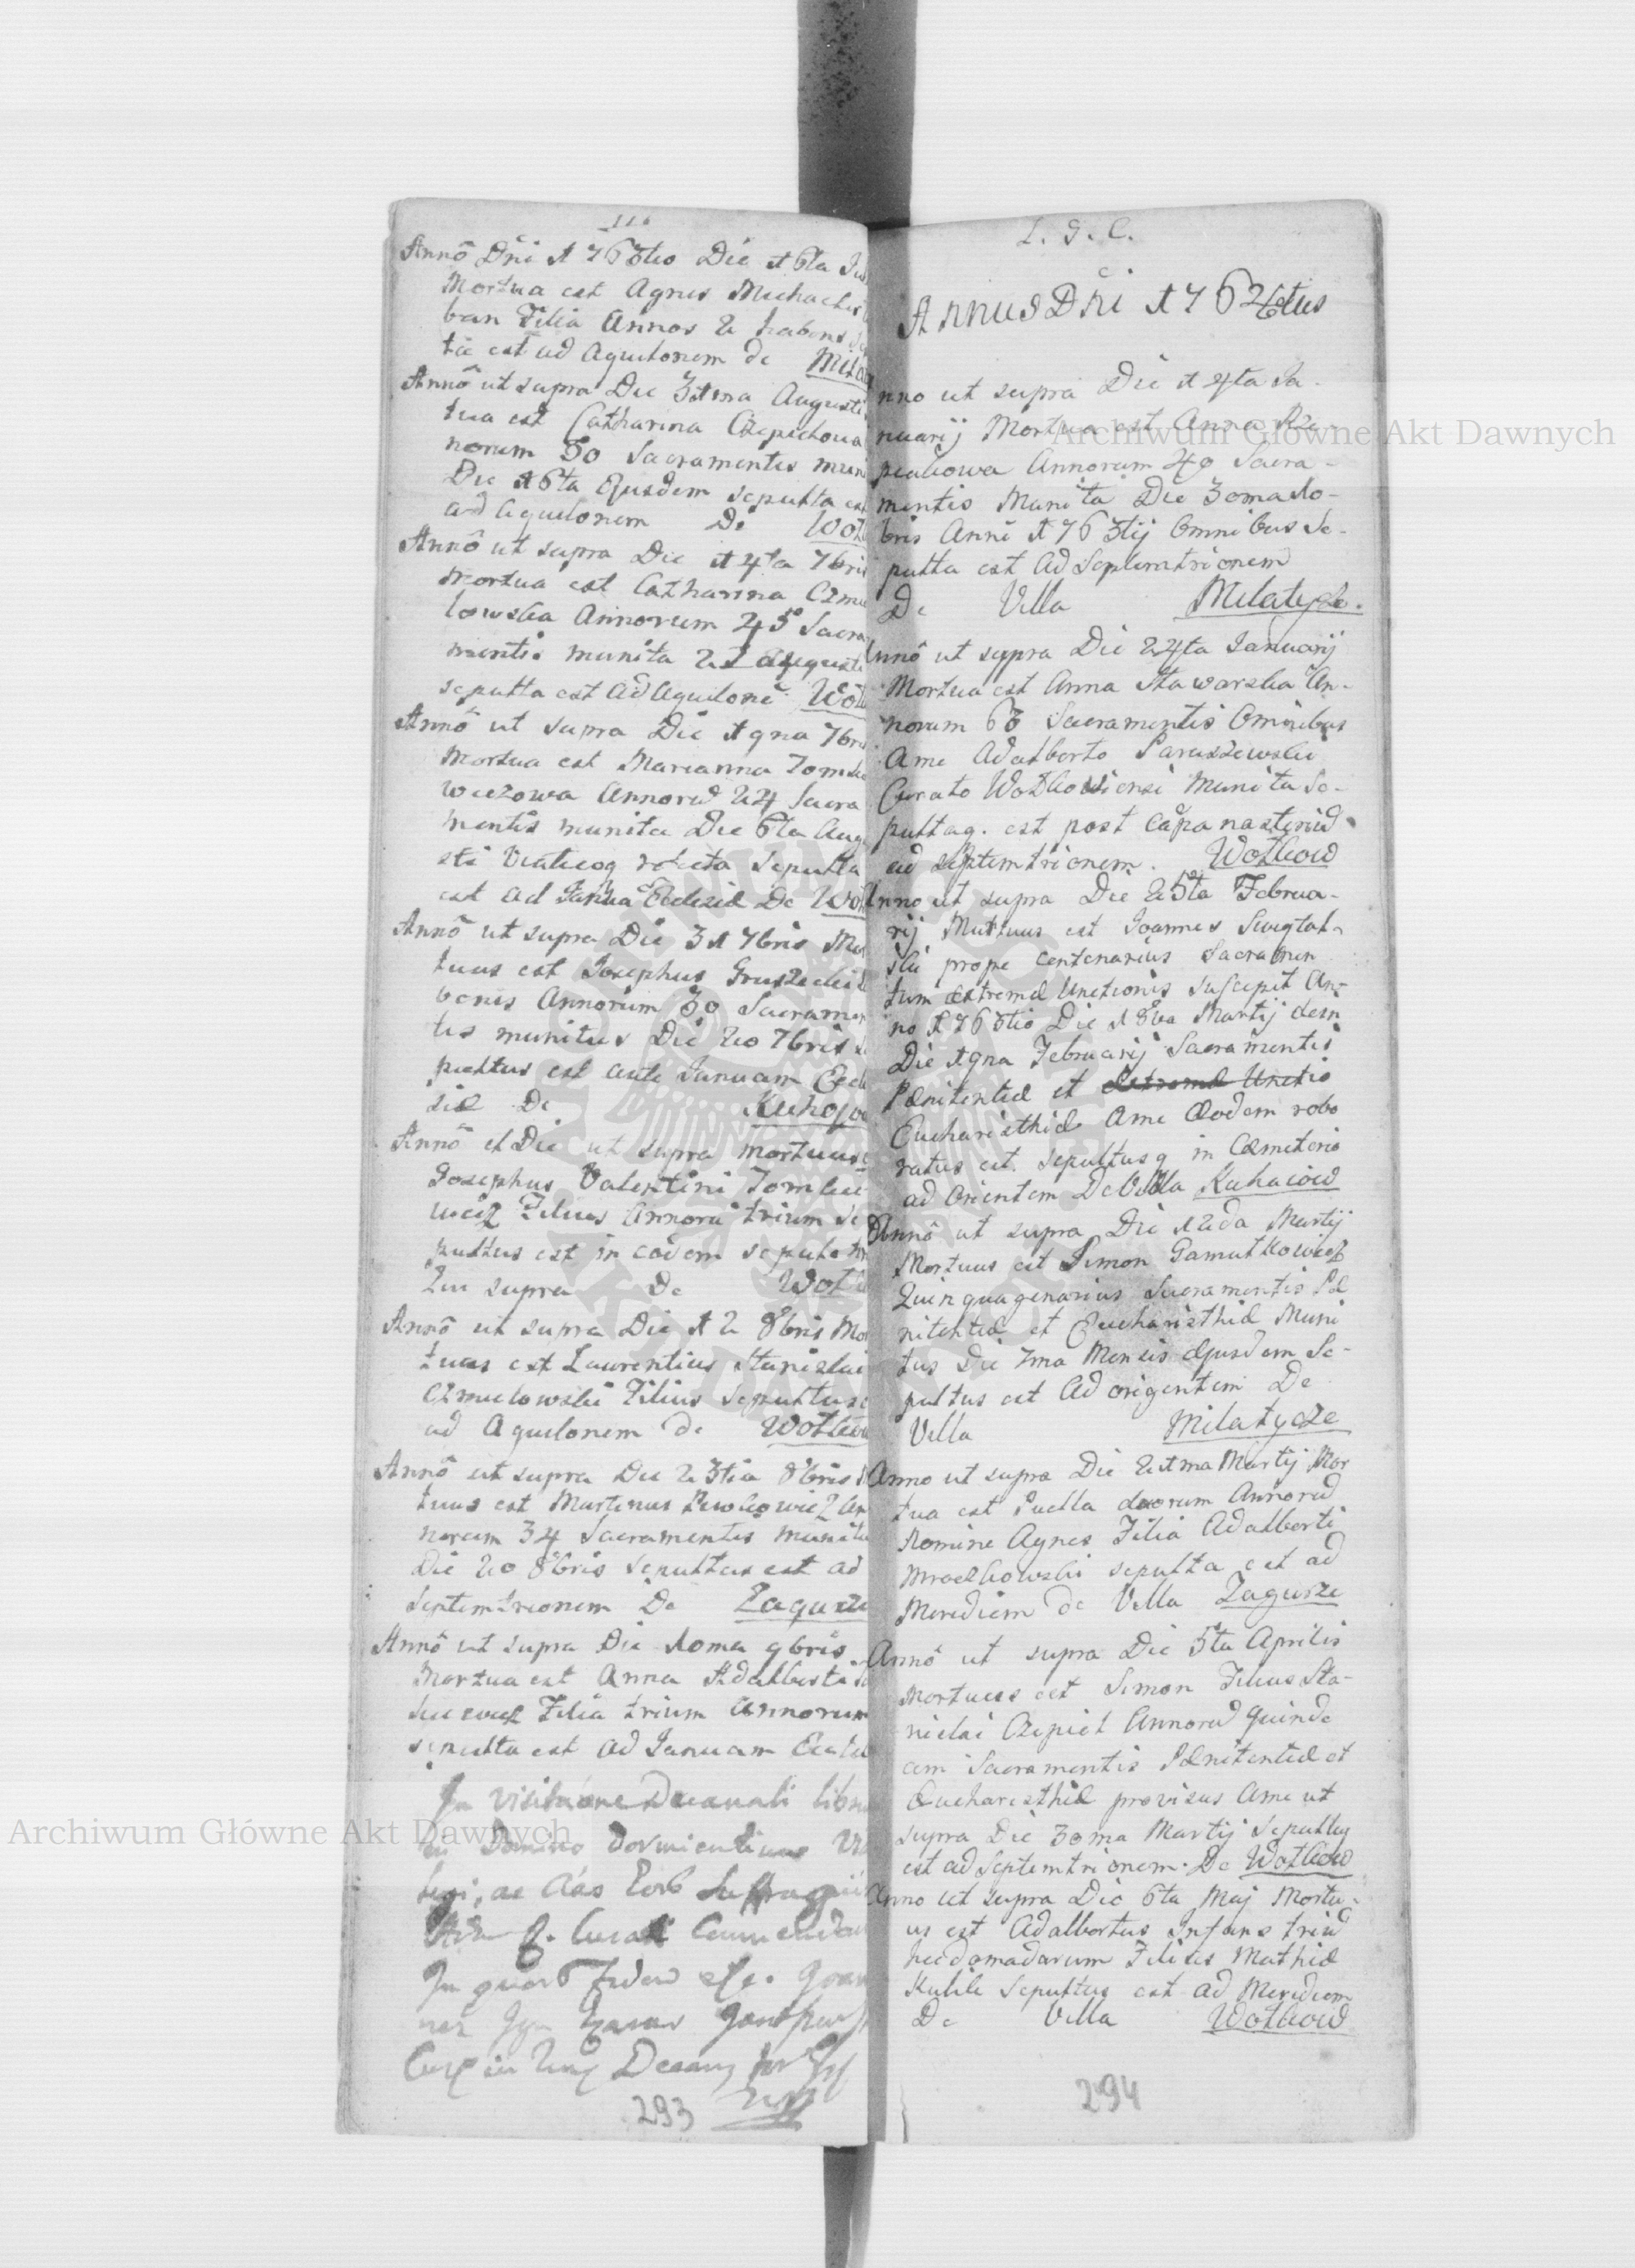 110
Annô Dñi 1763tio Die 16ta Ju
Mortua est Agnes Michaelis
ban Filia Annos 2 habens
ta est ad Aquilonem de Mila
Annô ut supra Die 31ma Augusti
tua est Catharina Czepielowa
norum 50 Sacramentis muni
Die 16ta Ejusdem sepulta est
ad Aquilonem De Woł
Annô ut supra Die 14ta 7bris
Mortua est Catharina Czmie
lowska Annorum 45 Sacra
mentis munita 22 Augusti
sepulta est ad Aquilonē Woł
Annô ut supra Die 19na 7bris
Mortua est Marianna Tomke
wiczowa Annorū 24 Sacra
mentis munita Die 6ta Aug
sti Viaticoq refecta Sepulta
est ad Januā Ecclesiæ De Woł
Annô ut supra Die 31 7bris Mor
tuus est Josephus Gruszecki
venis Annorum 30 Sacramen
tis munitus Die 20 7bris se
pultus est ante Januam Eccle
siæ De Kuhajow
Annô et Die ut supra mortuus
Josephus Valentini Tomkie
wicz Filius Annorū trium se
pultus est in eodem sepulchr
Qui supra De Wołk
Annô ut supra Die 12 8bris Mor
tuus est Laurentius Stanislai
Czmielowski Filius Sepultus e
ad Aquilonem de Wołkow
Annô ut supra Die 23tia 8bris
tuus est Martinus Pewkowicz An
norum 34 Sacramentis munitu
Die 20 8bris sepultus est ad
Septemtrionem De Zagurze
Annô ut supra Die Noma 9bris
Mortua est Anna Adalberti
wicz Filia trium Annorum
sepulta est ad Januam Eccle
In visitatione Decanali libru
in Domino dormientium
legi, ac
In quorū fidem
293
I. G. C.
Annus Dñi 1764tus
nno ut supra Die 14ta Ja-
nuarij Mortua est Anna Rze-
pialowa Annorum 40 Sacra-
mentis Munita Die 30ma No-
bris Anni 1763tij Omnibus Se-
pulta est ad Septemtrionem
De Villa Milatycze.
Annô ut supra Die 24ta Januarij
Mortua est Anna Stawarska An-
norum 63 Sacramentis Omnibus
A me Adalberto Paruszewski
Curato Wołkowiensi Munita Se-
pultaq. est post Cāpanasteriū
ad septemtrionem. Wołkow
Anno ut supra Die 25ta Februa-
rij Mortuus est Joannes
ski prope Centenarius Sacramen
tum extremæ Unctionis suscepit An-
no 1763tio Die 18va Martij dein
Die 19na Februarij Sacramentis
Pænitentiæ et Extremæ Unctio
Eucharisthiæ A me Eodem robo
ratus est. sepultusq in Cæmeterio
ad Orientem De Villa Kuhaiow
Annô ut supra Die 12da Martij
Mortuus est Simon Gamułkowicz
Quinquagenarius Sacramentis Pæ
nitentiæ et Eucharisthiæ Muni
tus Die 7ma Mensis Ejusdem Se-
pultus est Ad origentem De
Villa Milatycze
Anno ut supra Die 21ma Martij Mor
tua est Puella duorum Annorū
Nomine Agnes Filia Adalberti
Mroczkowski sepulta est ad
Meridiem de Villa Zagurze
Annô ut supra Die 5ta Aprilis
Mortuus est Simon Filius Sta-
nislai Czepiel Annorū quinde
cim Sacramentis Pænitentiæ et
Eucharisthiæ provisus A me ut
supra Die 30ma Martij Sepultus
est ad Septemtrionem. De Wołkow
Anno ut supra Die 6ta Maj Mortu-
us est Adalbertus Infans triū
hebdomadarum Filius Mathiæ
Kulik Sepultus est ad Meridiem
De Villa Wołkow
294
Archiwum Główne Akt Dawnych
Archiwum Główne Akt Dawnych